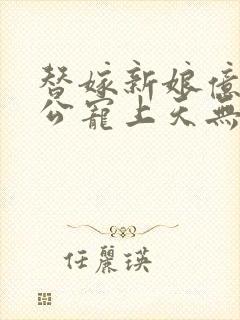 替嫁新娘億
公寵上天無
任麗瑛